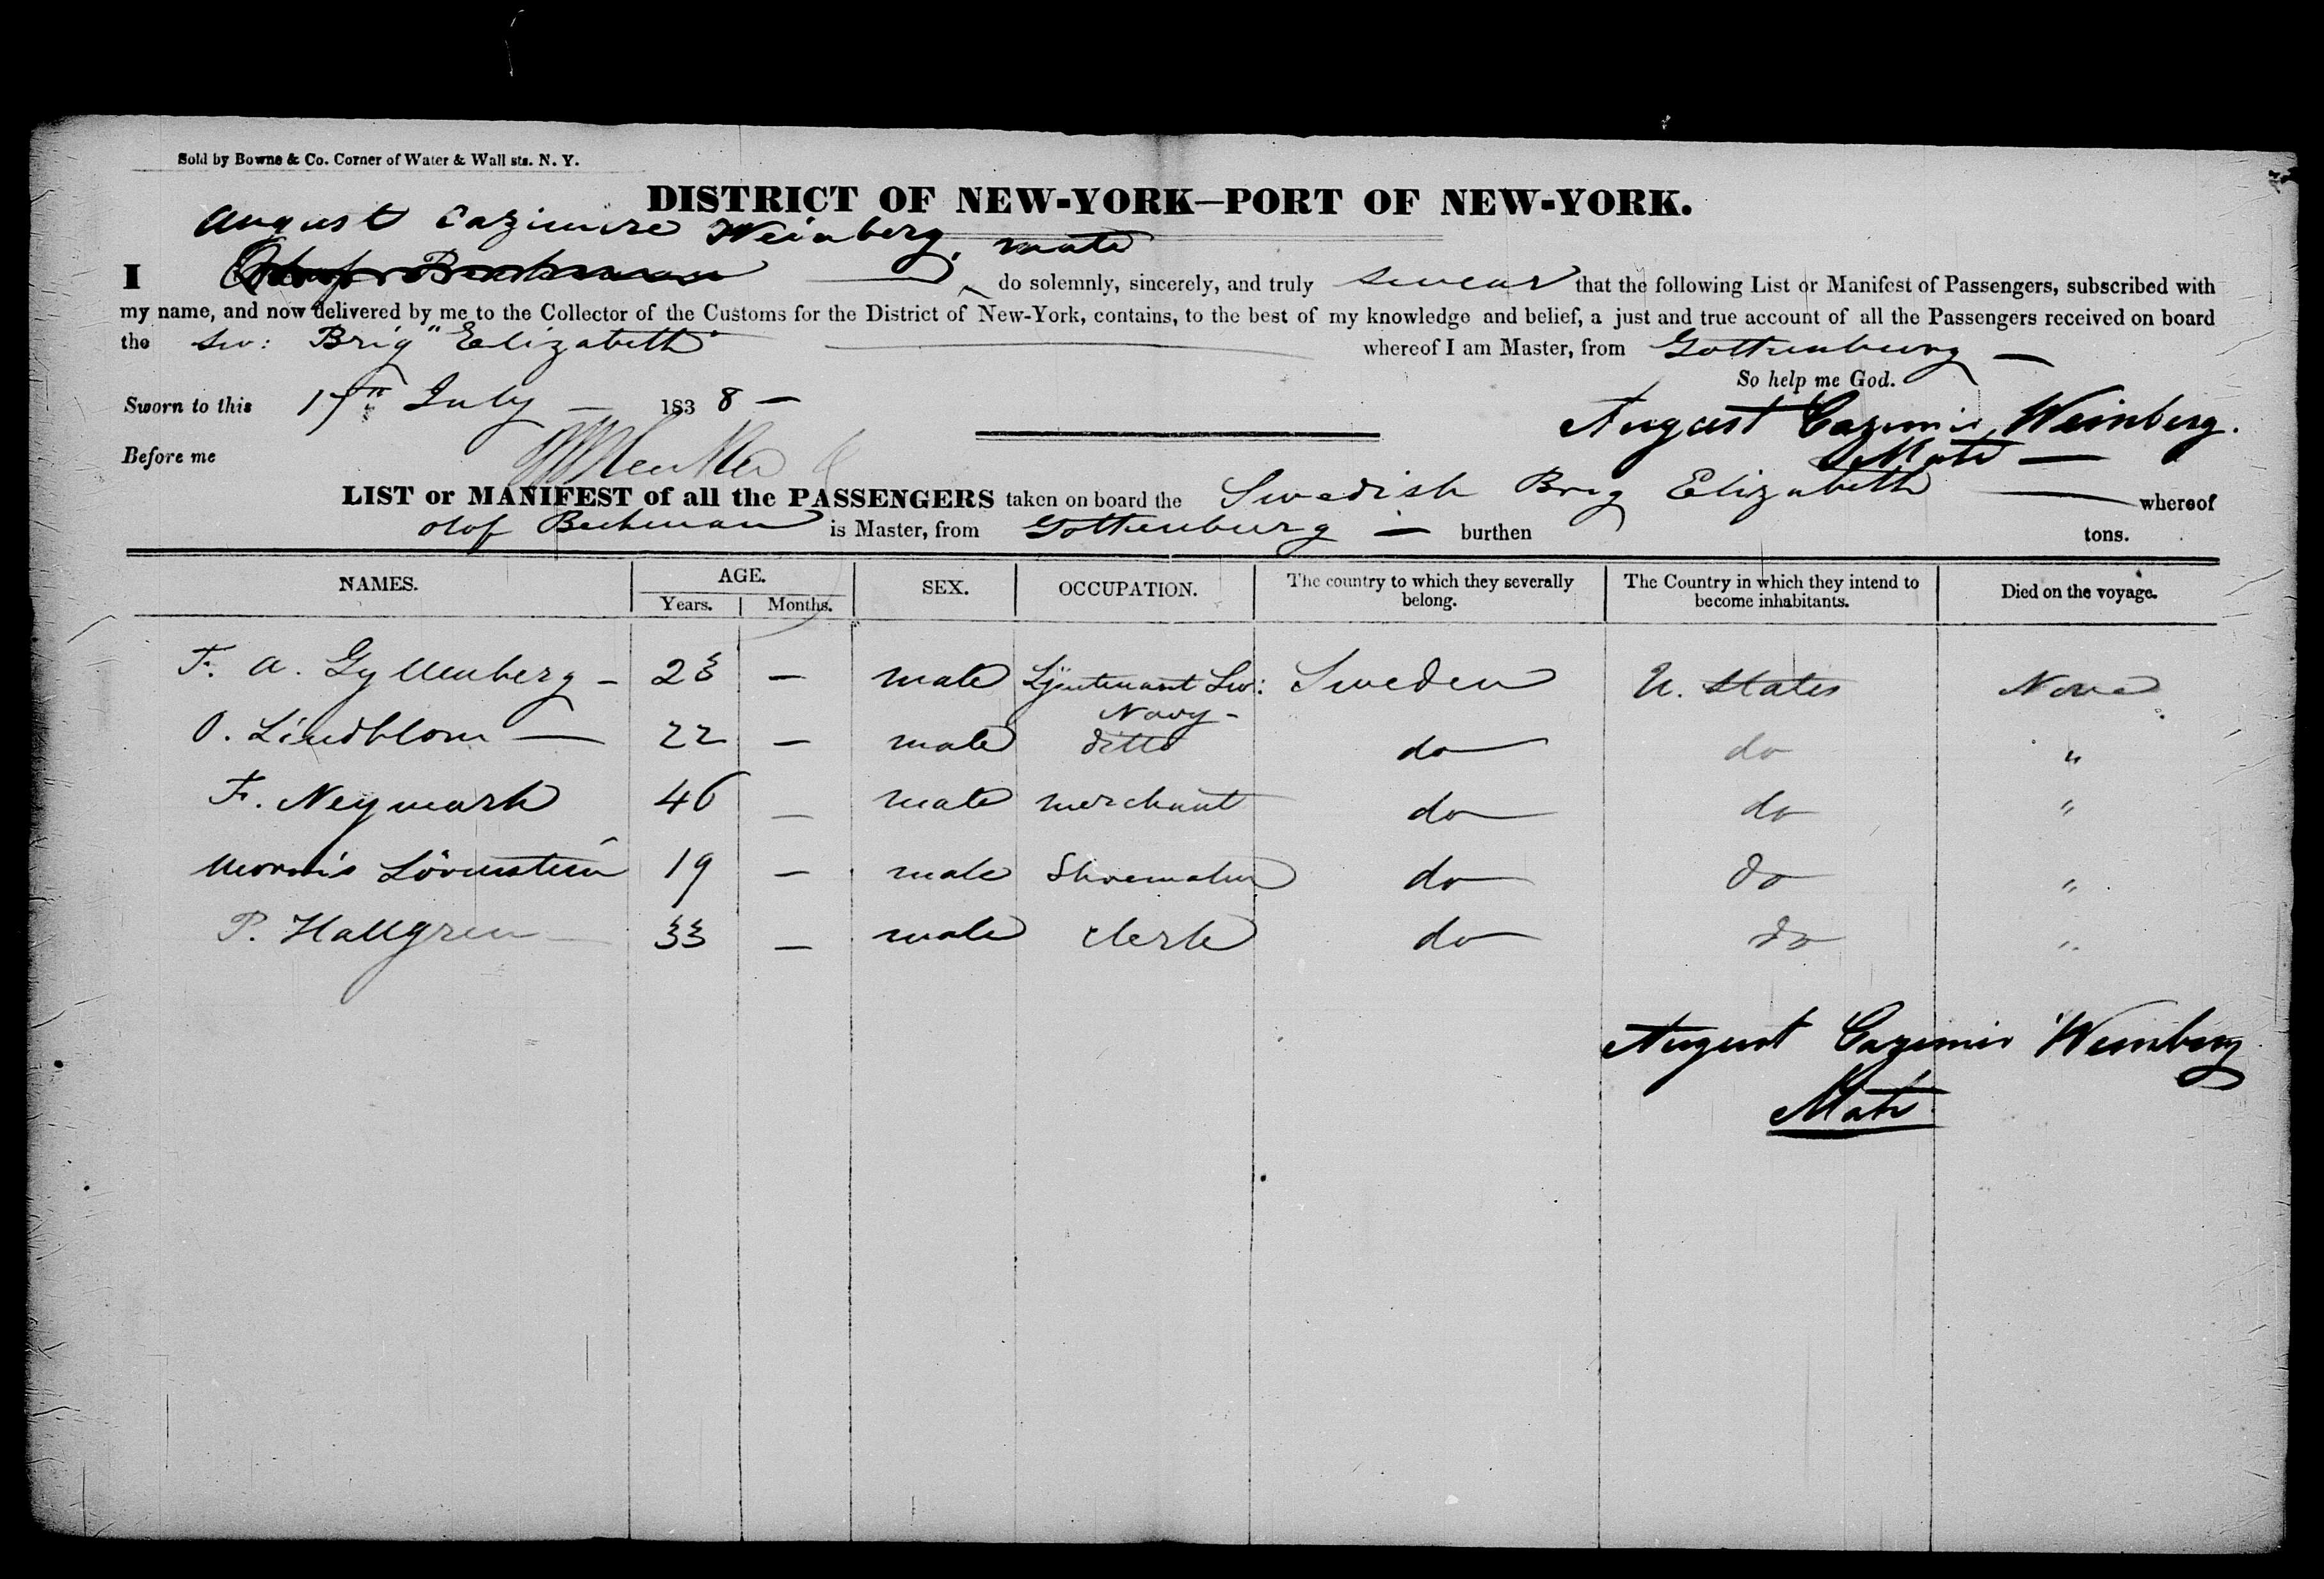 Sold by Bowne & Co. Corner of Water & Wall sts. N. Y.
DISTRICT OF NEW-YORK—PORT OF NEW-YORK.
August Cazimire Weinberg, mate
I Olof Beckman do solemnly, sincerely, and truly swear that the following List or Manifest of Passengers, subscribed with
my name, and now delivered by me to the Collector of the Customs for the District of New-York, contains, to the best of my knowledge and belief, a just and true account of all the Passengers received on board
the Sw: Brig "Elizabeth" whereof I am Master, from Gottenburg —
So help me God.
Sworn to this 17th July — 1838 —
August Cazimir Weinberg.
Mate —
Before me
LIST or MANIFEST of all the PASSENGERS taken on board the Swedish Brig Elizabeth — whereof
Olof Beckman is Master, from Gottenburg — burthen tons.
NAMES. AGE. SEX. OCCUPATION. The country to which they severally belong. The Country in which they intend to become inhabitants. Died on the voyage.
Years. Months.
F. A. Gyllenberg — 23 — male Ljeutenant Sw: Navy — Sweden U. States None
O. Lindblom — 22 — male ditto do do "
F. Neymark 46 — male merchant do do "
Morris Lövenstein 19 — male Shoemaker do do "
P. Hallgren — 33 — male clerk do do "
August Cazimir Weinberg
Mate